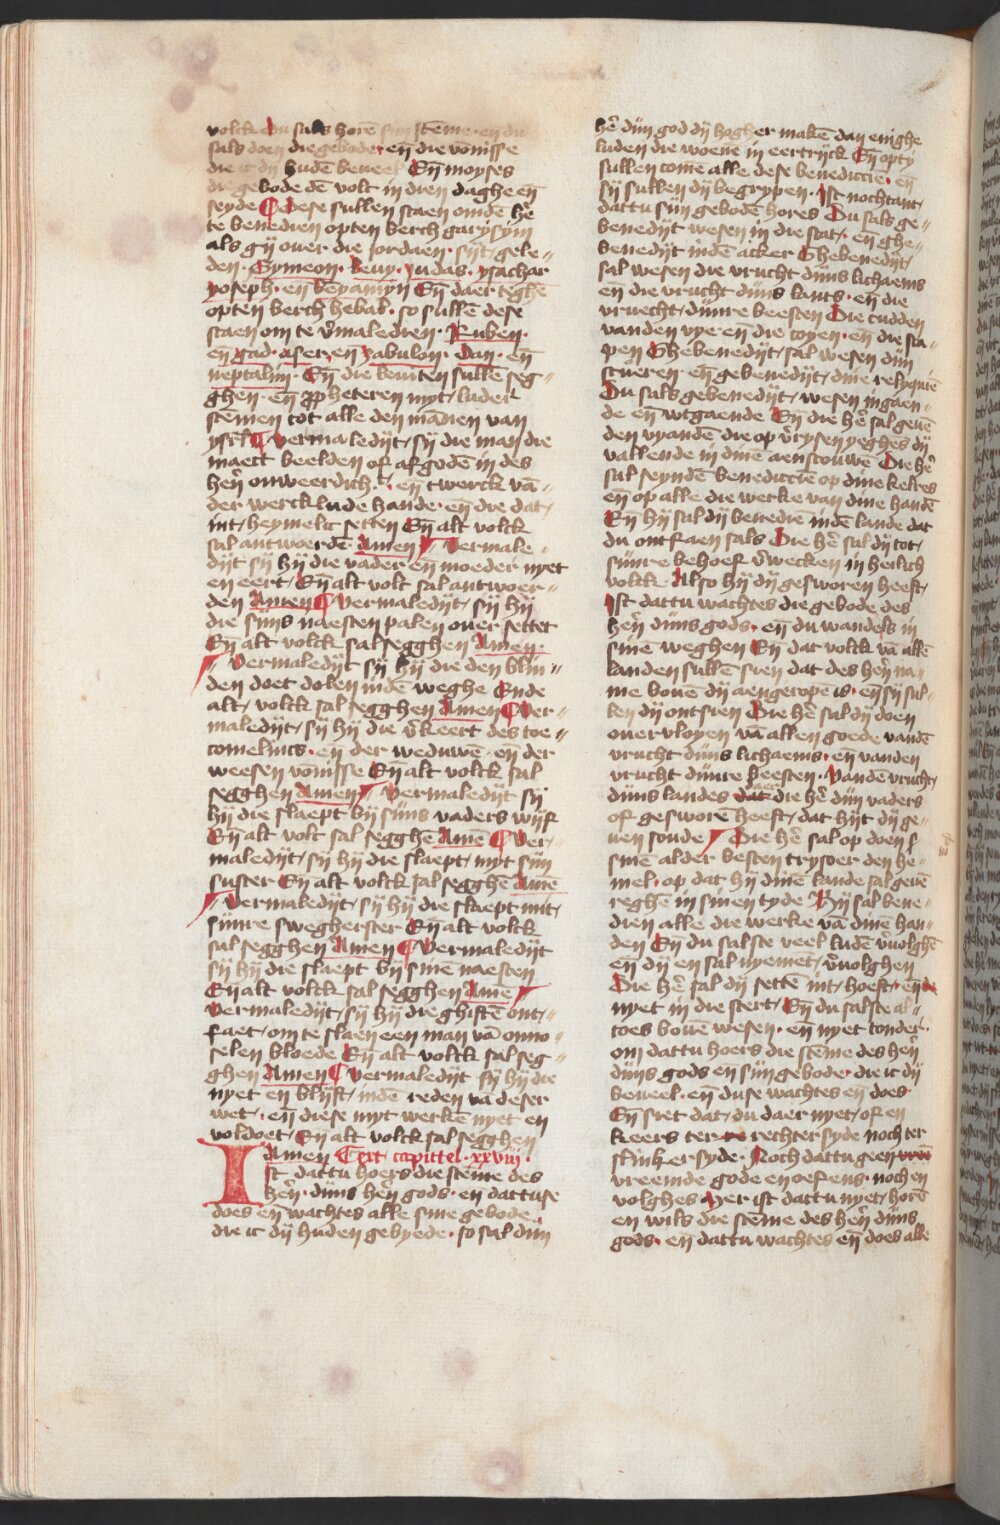 volck du sals horē sijn stēme · en du
sals doen die gebode · en̄ die vōnisse
die ic dij huden beveel En̄ moyses
die gebode dē volk in dien daghe en̄
seyde Dese sullen staen omdē hē
te benedien opten berch garysym
als gij over die jordaen · sijt gele〃
den · Symeon · Levy · Judas · ysachar
yoseph · en̄ benyamyn En̄ daer teghē
opten berch hebal · so sullē dese
staen om te v̄maledien · Ruben ·
en̄ gad · aser · en̄ zabulon · Dan · en̄
neptalim · En̄ die leviten sullē seg〃
ghen · en̄ ꝓpheteren myt luder
stēmen tot alle den māñen van
ysrl̄ vermaledijt / sij die man die
maect beelden of afgodē in des
herē onweerdich · en̄ twerck vā〃
der wercklude hande · en̄ die dat /
int / heymelic setten En̄ alt volck
sal antwoerdē Amen Vermale〃
dijt sij hij die vader en̄ moeder nyet
en eert / En̄ alt volk sal antwoer〃
den Amen Vermaledijt / sij hij
die sijns naesten palen over settet
En̄ alt volck sal segghen Amen ·
Vermaledijt sij hij die den blin〃
den doet dolen indē weghe Ende
alt / volck sal segghen Amen Ver〃
maledijt / sij hij die v̄keert des toe〃
comelincs · en̄ der weduwē · en̄ der
weesen vōnisse En̄ alt volck sal
segghen Amen Vermaledijt sij
hij die slaept bij sijns vaders wijf
En̄ alt volk sal segghē Amē Ver〃
maledijt / sij hij die slaept / myt sijn
suster En̄ alt volck sal segghē Amē
Vermaledijt / sij hij die slaept mit /
sijnre swegherster En̄ alt volck
sal segghen Amen Vermaledijt
sij hij die slaept bij sinē naesten
En̄ alt volck sal segghen Amē
Vermaledijt / sij hij die ghiftē ont〃
faet / om te slaen een man vā onno〃
selen bloede En̄ alt volck sal seg〃
ghen Amen Vermaledijt sij hij die
nyet en blijft / indē reden vā deser
wet / · en̄ diese myt werkē nyet en
voldoet / En̄ alt volck sal segghen
Amen Text capittel · xxviij ·
Ist dattu hoers die stēme des
herē · dijns herē gods · en dattuse
does en̄ wachtes alle sine gebode
die ic dij huden gebyede · so sal dijn
hē dijn god dij hogher makē dan enighe
luden die woenē in eertrijck En̄ opty
sullen comē alle dese benedictie · en̄
sij sullen dij begrypen · Ist nochtant /
dattu sijn gebodē hores Du sals ge〃
benedijt wesen in die stat / · en̄ ghe〃
benedijt indē acker Ghebenedijt /
sal wesen die vrucht dijns lichaems
en̄ die vrucht dijns lants · en̄ die
vruecht / dijnre beesten Die cudden
vanden vye · en̄ die coyen · en̄ die sca〃
pen Ghebenedijt / sal wesen dijn
scueren · en̄ gebenedijt / dine reliquiē
Du sals gebenedijt / wesen ingaen〃
de en̄ wtgaende En̄ die hē sal gevē
den vyandē die op v̄rysen yeghes dij
vallende in dinē aenscouwē Die hē
sal seyndē benedictie op dine kelres
en̄ op alle die werke van dine handē
En̄ hij sal dij benediē indē lande dat
du ontfaen sals Die hē sal dij tot /
sijnre behoef v̄wecken in heilich
volck Also hij dij gesworen heeft /
Ist dattu wachtes die gebode des
herē dijns gods · en̄ du wandels in
sinē weghen En̄ dat volck vā allē
landen sullē sien dat des herē na〃
me bovē dij aengeropē is · en̄ sij sul〃
len dij ontsien Die hē sal dij doen
overvloyen vā allen goede vandē
vrucht dijns lichaems · en̄ vanden
vrucht dijnre beesten · Vandē vrucht /
dijns landes die hē dijn vaders
of geswore heeft / dat hijt dij ge〃
ven soude Die hē sal op doen
sinē alder besten trysoer den he〃
mel · op dat hij dinē lande sal gevē
reghē in sinen tyde Hij sal bene〃
dien alle die werke vā dinē han〃
den En̄ du salste veel ludē v̄volghē
en̄ dij en sal nyemet / v̄volghen
Die hē sal dij settē int / hoeft · en̄
nyet in die stert / En̄ du salste al〃
toes bovē wesen · en̄ nyet tonder ·
om dattu hoers die stēme des herē
dijns gods en sijn gebode · die ic dij
beveel · en̄ duse wachtes en̄ does
En̄ siet dat / du daer nyet / of en
keers ter rechter syde noch ter
slinker syde · Noch dattu geen
vreemde gode en oefens · noch en
volghes Mer ist dattu nyet / horē
en wils die stēme des herē dijns
gods · en̄ dattu wachtes en̄ does alle